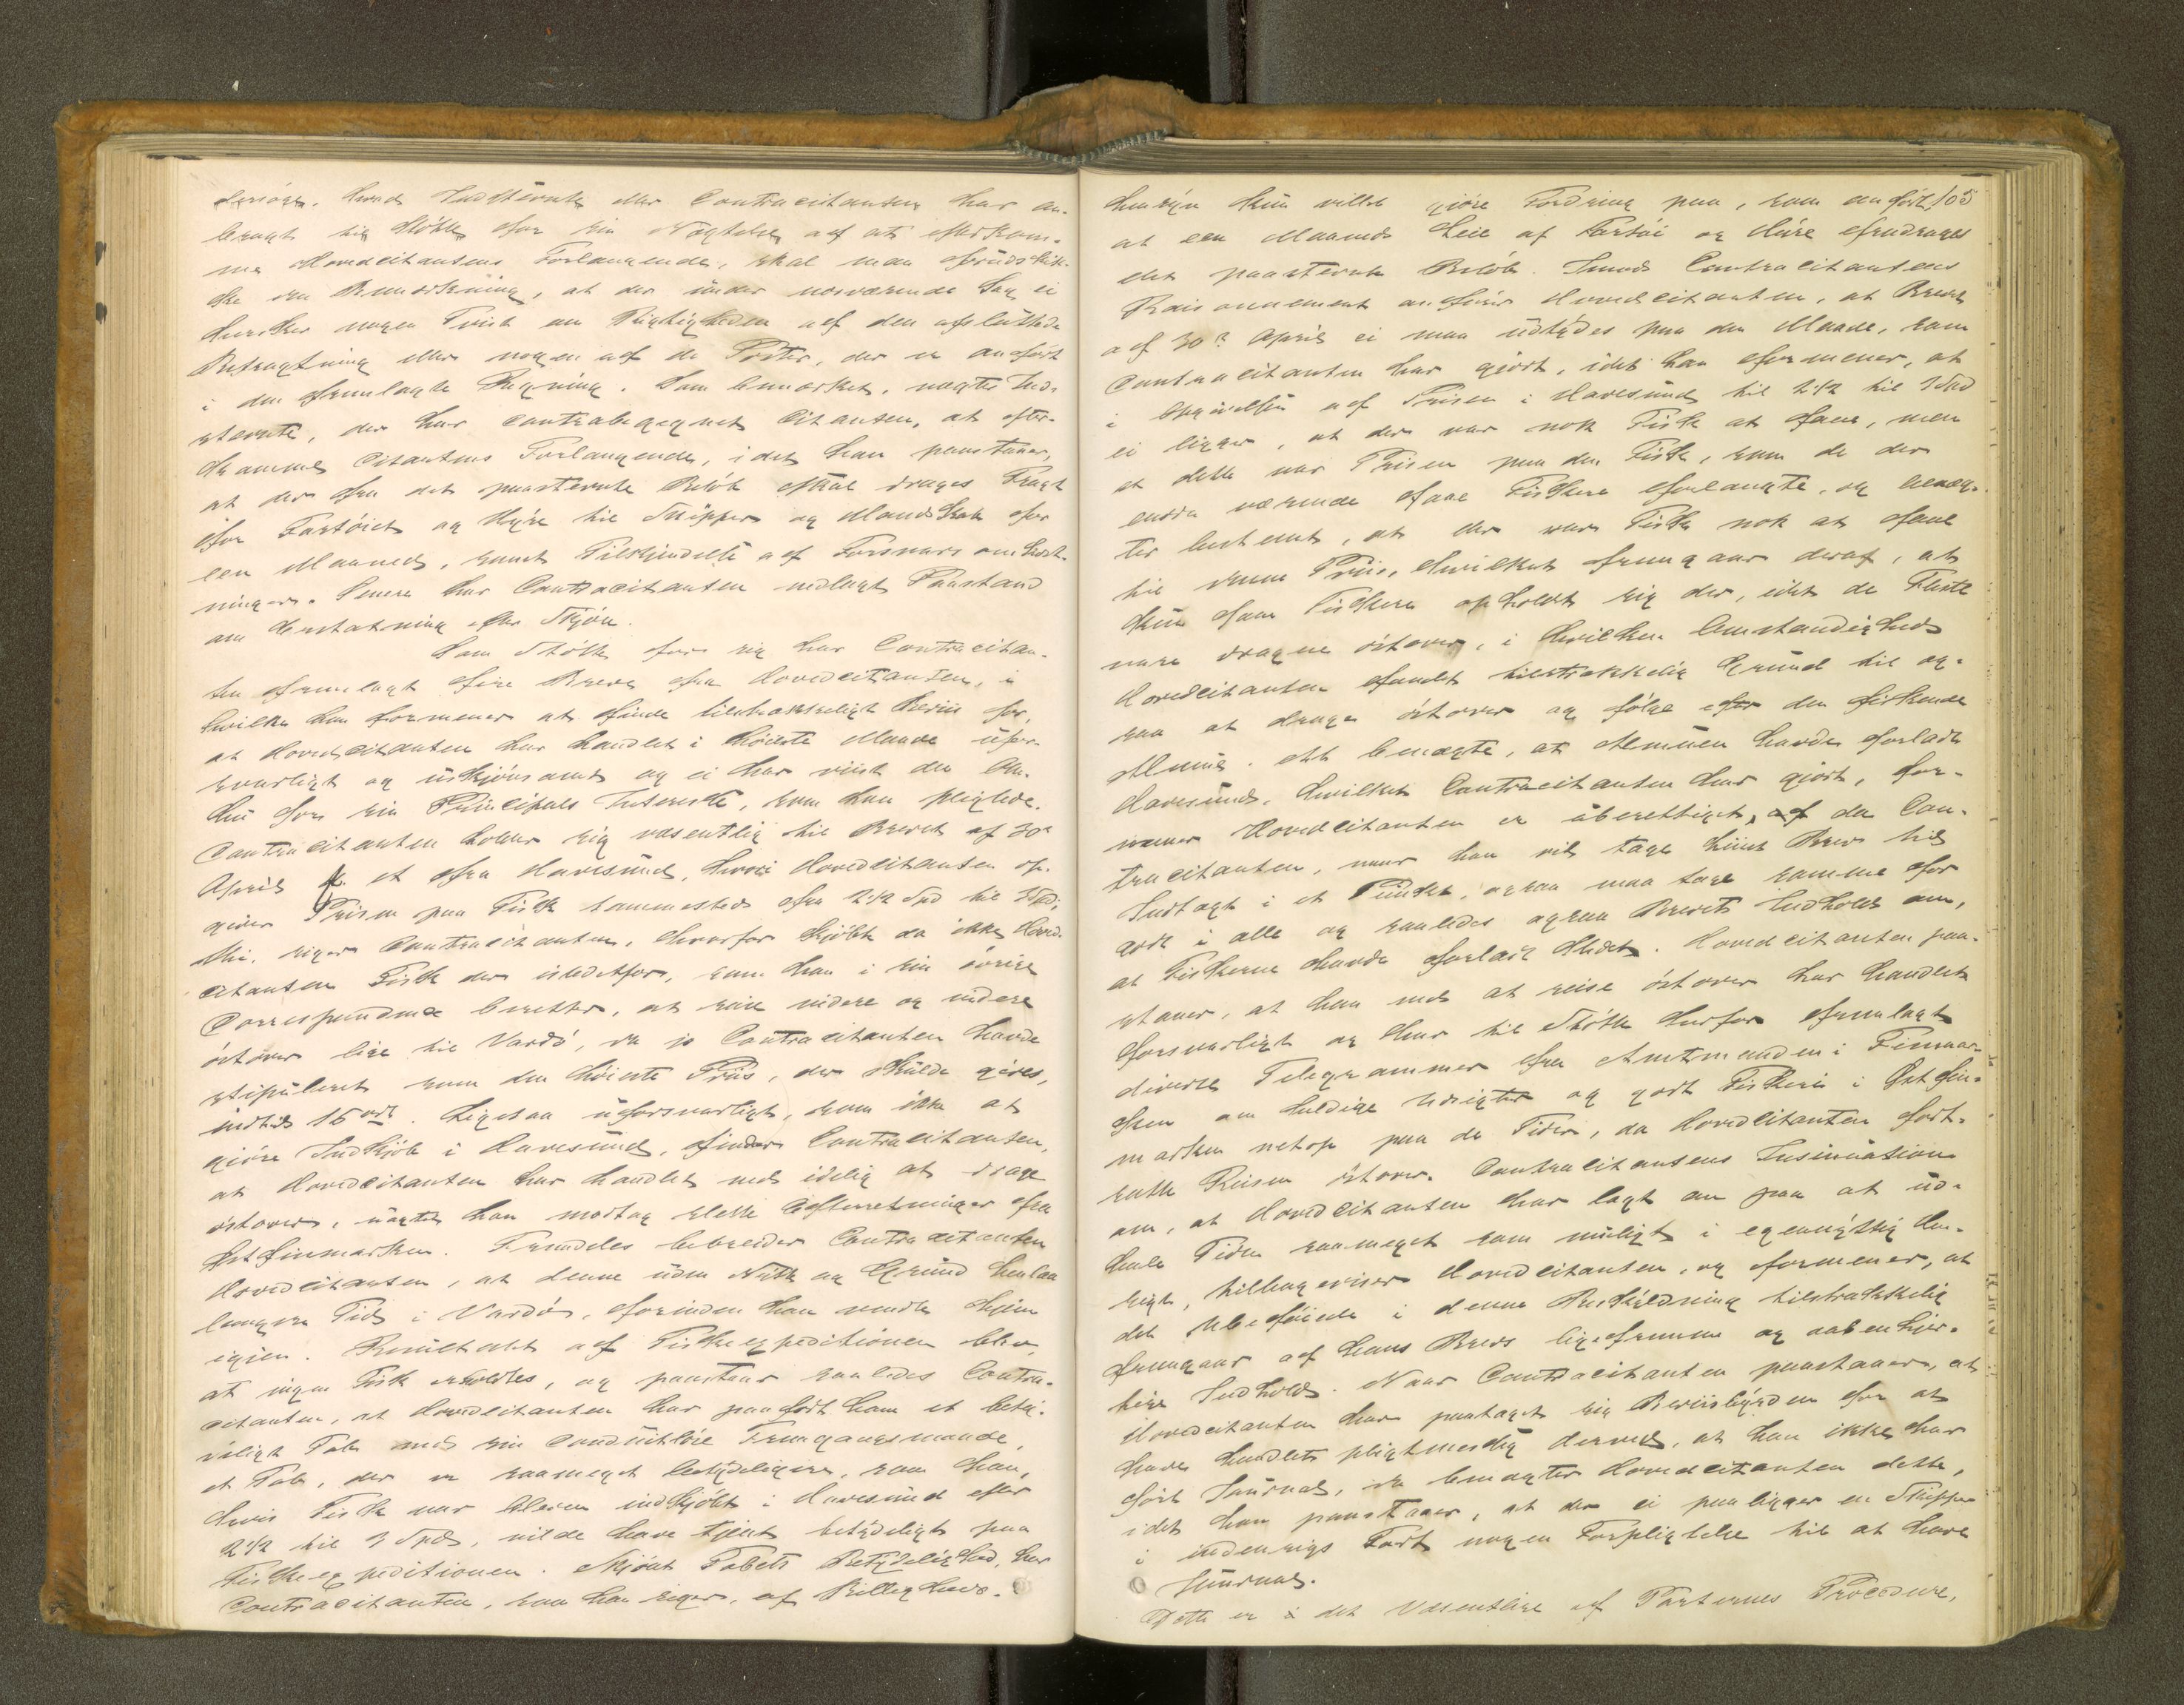 deriøger. Hvad Indstevnte eller Contracitanten har an-
bragt til Støtte for sin Nægtelse af at efterkom-
me Hovedcitantens Forlangende, skal man forudskik-
ke den Bemærkning, at der under nærværende Sag ei
hersker nogen Tvist om Rigtigheden af den afsluttede
Befragtning eller nogen af de Poster, der er anført
i den fremlagte Regning. Som bemærket, nægter Ind-
stevnte, der har contrabegegnet Citanten, at efter-
komme Citantens Forlangende, idet han paastaaer,
at der fra det paastevnte Beløb skal drages Fragt
for Fartøiet og Hyre til Skipper og Mandskab for
een Maaned, samt Tilkjendelse af Forsvars omkost-
ninger. Senere har Contracitanten nedlagt Paastand
om Erstatning efter Skjøn.
Som Støtte for sig har Contracitan-
ten fremlagt fire Breve fra Hovedcitanten, i
hvilke han formener at finde tilstrækkeligt Beviis for,
at Hovedcitanten har handlet i høieste Maade ufor-
svarligt og uskjønsomt og ei har viist den Om-
hu for sin Principals Interesse, som han pligtede.
Contracitanten holder sig væsentlig til Brevet af 30te
April fra Havøsund, hvori Hovedcitanten op-
giver Prisen paa Fisk sammesteds fra 2 1/2 Spd til 3 Spd;
thi, siger Contracitanten, hvorfor kjøbte da ikke Hoved-
citanten Fisk der istedetfor, som han i sin øvrige
Correspondence beretter, at reise videre og videre
østover lige til Vardø, da jo Contracitanten havde
stipuleret som den høieste Priis, der skulde gives,
indtil 16 ort. Ligesaa uforsvarligt, som ikke at
gjøre Indkjøb i Havøsund, finder Contracitanten,
at Hovedcitanten har handlet ved idelig at drage
østover, uagtet han modtog slette Efterretninger fra
Østfinmarken. Fremdeles bebreider Contracitanten
Hovedcitanten, at denne uden Nytte og Grund henlaa
længere Tid i Vardø, forinden han vendte hjem
igjen. Resultatet af Fiskeexpeditionen blev,
at ingen Fisk erholdtes, og paastaar saaledes Contra-
citanten, at Hovedcitanten har paaført ham et bety-
deligt Tab ved sin conduitløse Fremgangsmaade,
et Tab, der er saameget betydeligere, som han,
hvis Fisk var bleven indkjøbt i Havøsund efter
2 1/2 til 3 Spd, vilde have tjent betydeligt paa
Fiskeexpeditionen. Skjønt Tabets Betydelighed, har
Contracitanten, som han siger, af Billigheds-
hensyn kun villet gjøre Fordring paa, som anført, 105
at een Maaneds Leie af Fartøi og Hyre fradrages
det paastevnte Beløb. Imod Contracitantens
Raisonnement anfører Hovedcitanten, at Brevet
af 30te April ei maa udtydes paa den Maade, som
Contracitanten har gjort, idet han formener, at
i Opgivelsen af Prisen i Havøsund til 2 1/2 til 3 Spd
ei ligger, at der var nok Fisk at faae, men
at dette var Prisen paa den Fisk, som de der
endnu værende faae Fiskere forlangte, og benæg-
ter bestemt, at der var Fisk nok at faae
til denne Priis, hvilket fremgaar deraf, at
kun faae Fiskere opholdt sig der, idet de Fleste
vare dragne østover, i hvilken Omstændighed
Hovedcitanten fandt tilstrækkelig Grund til og-
saa at drage østover og følge efter den fiskende
Almue. At benægte, at Almuen havde forladt
Havøsund, hvilket Contracitanten har gjort, for-
mener Hovedcitanten er uberettiget, af da Con-
tracitanten, naar han vil tage hiint Brev til
Indtægt i et Punkt, ogsaa maa tage samme for
godt i alle og saaledes ogsaa Brevets Indhold om,
at Fiskerne havde forladt Stedet. Hovedcitanten paa-
staaer, at han ved at reise østover har handlet
forsvarligt og har til Støtte herfor fremlagt
diverse Telegrammer fra Amtmanden i Finmar-
ken om heldige Udsigter og godt Fiskeri i Østfin-
marken netop paa de Tider, da Hovedcitanten fort-
satte Reisen østover. Contracitantens Insinuation
om, at Hovedcitanten har lagt an paa at ud-
hale Tiden saameget som muligt i egennyttig Hen-
sigt, tilbageviser Hovedcitanten, og formener, at
det Ubeføiede i denne Beskyldning tilstrækkelig
fremgaar af hans Brevs ligefremme og aabenhjer-
tige Indhold. Naar Contracitanten paastaaer, at
Hovedcitanten har paataget sig Beviisbyrden for at
have handlet pligtmæssig derved, at han ikke har
ført Journal, da benægter Hovedcitanten dette,
idet han paastaaer, at der ei paaligger en Skipper
i indenrigs Fart nogen Forpligtelse til at have
Journal.
Dette er i det Væsentlige af Parternes Procedure,